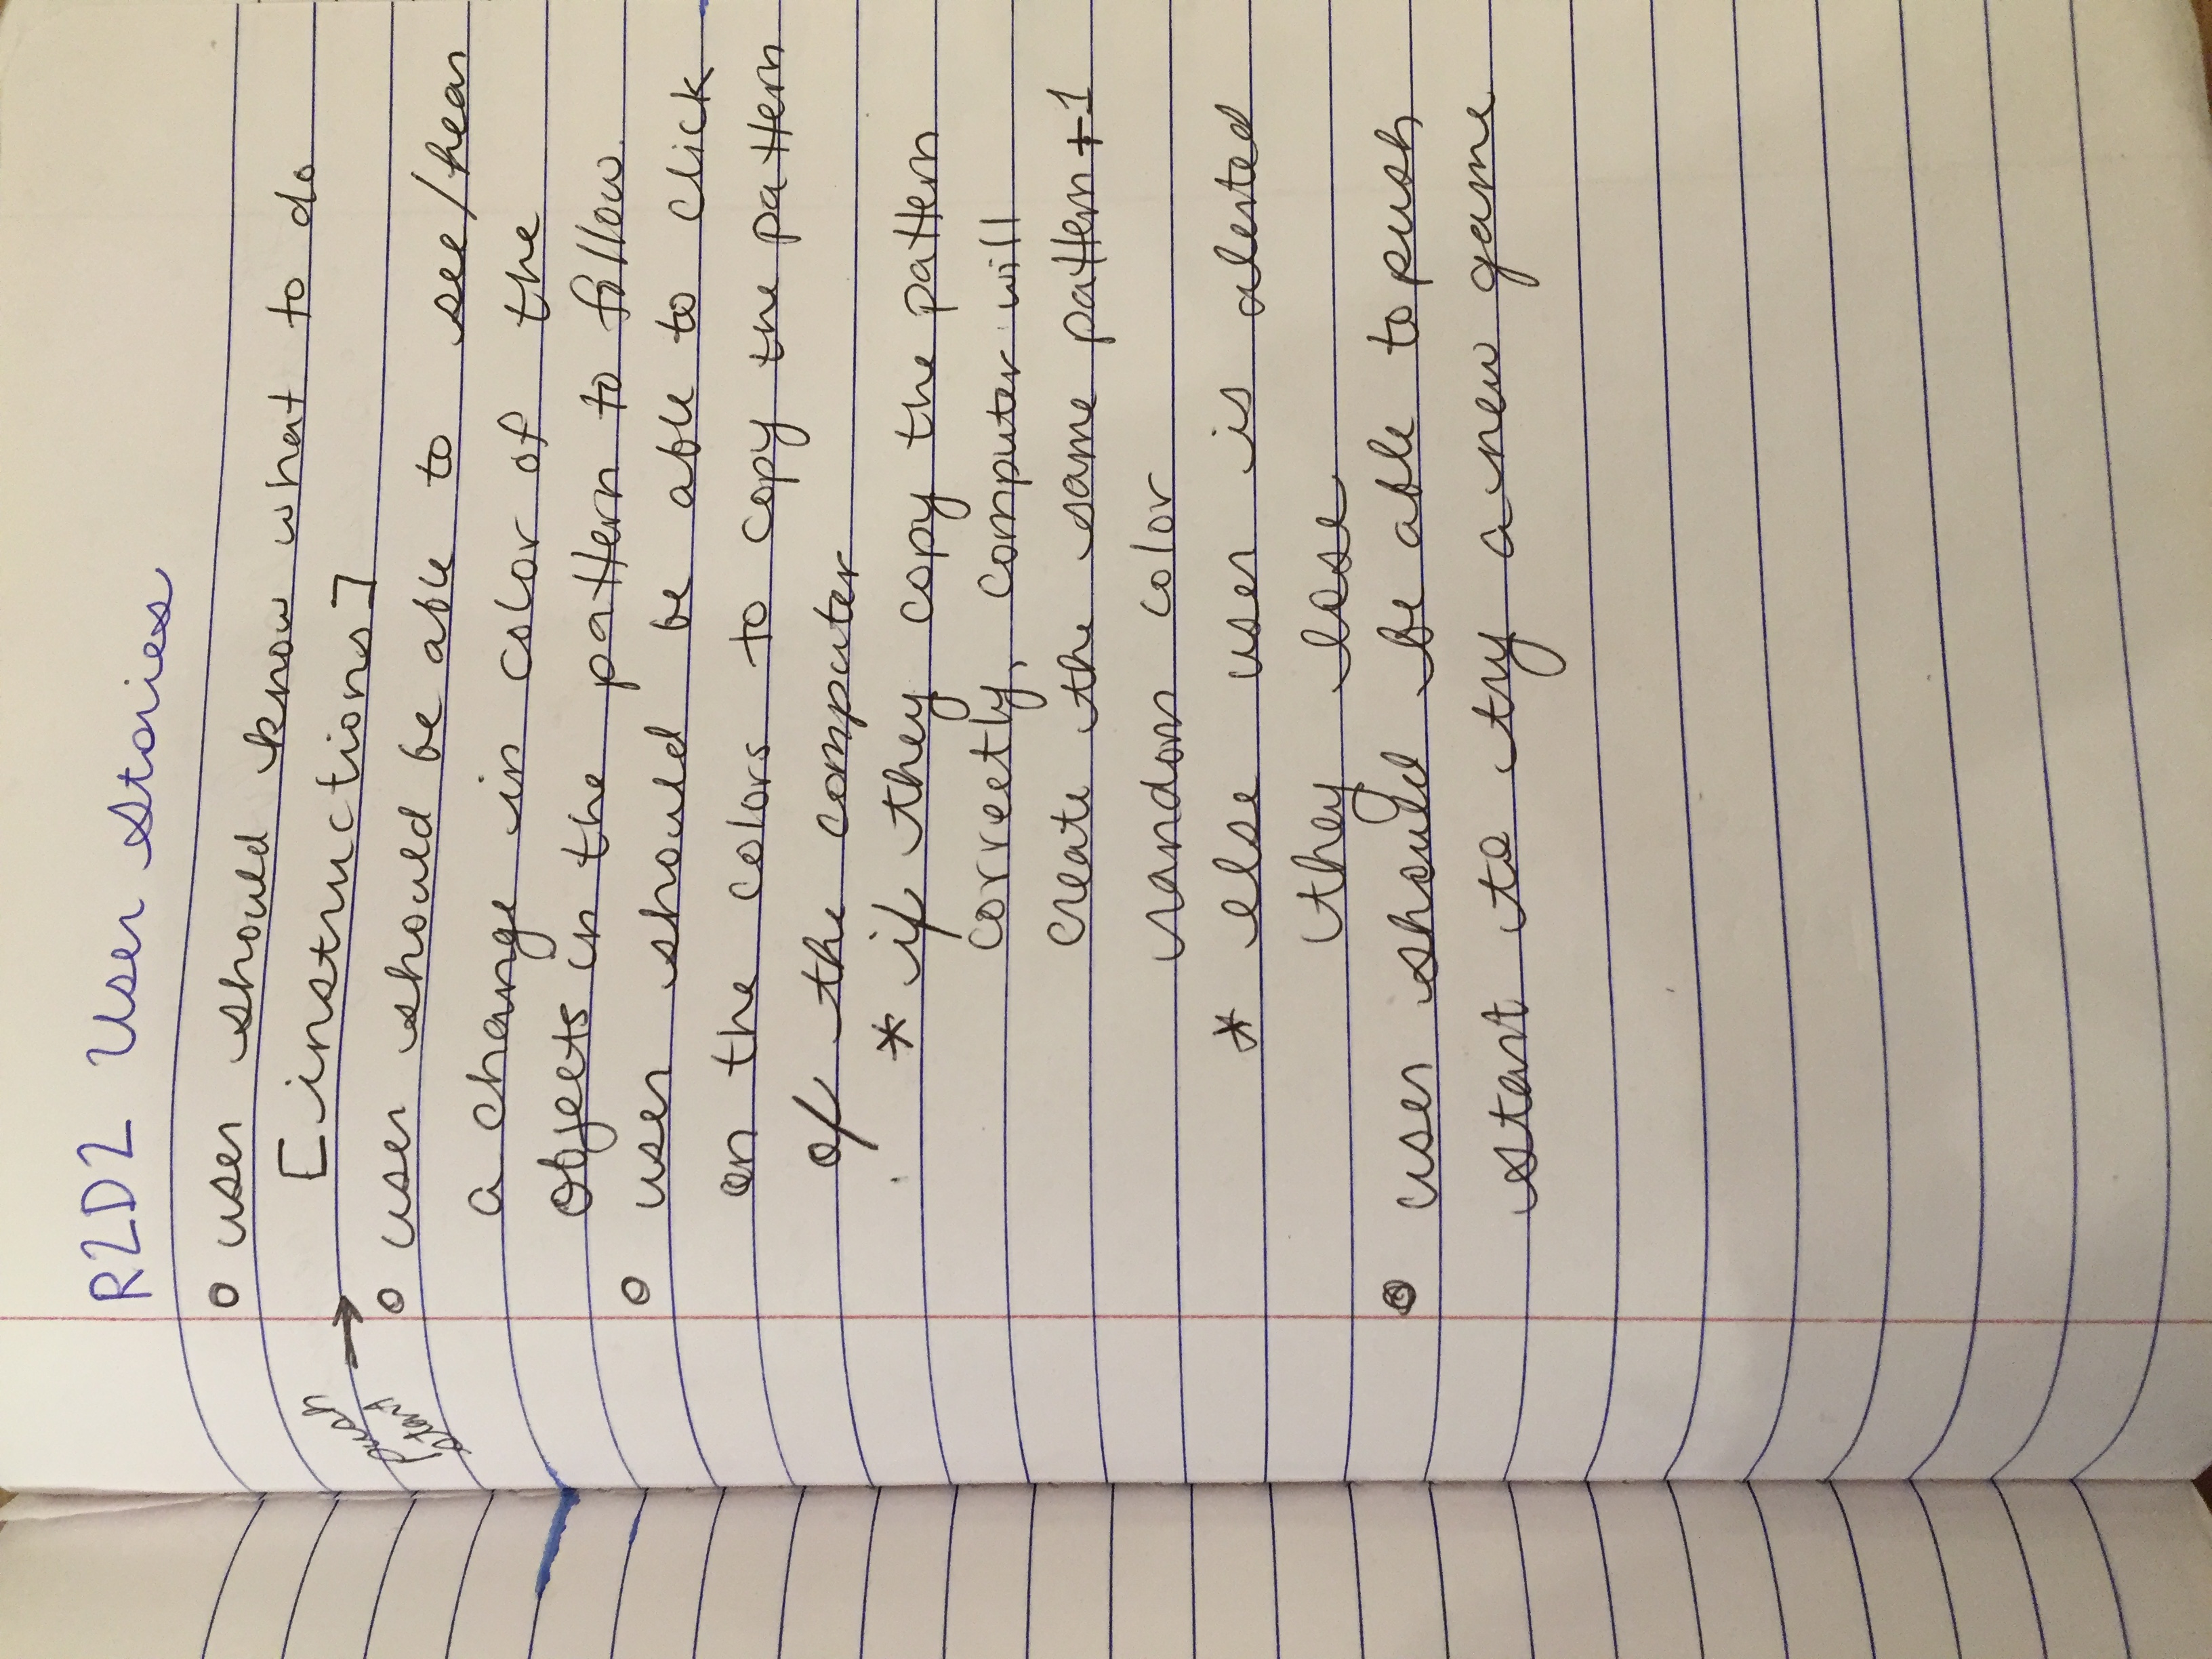 R2D2 User Stories
o user should know what to do
[instructions]
push
start →
o user should be able to see/hear
a change in color of the
objects in the pattern to follow.
o user should be able to click
on the colors to copy the pattern
of the computer
* if they copy the pattern
correctly, computer will
create the same pattern + 1
random color
* else user is alerted
they lose
o user should be able to push
start to try a new game